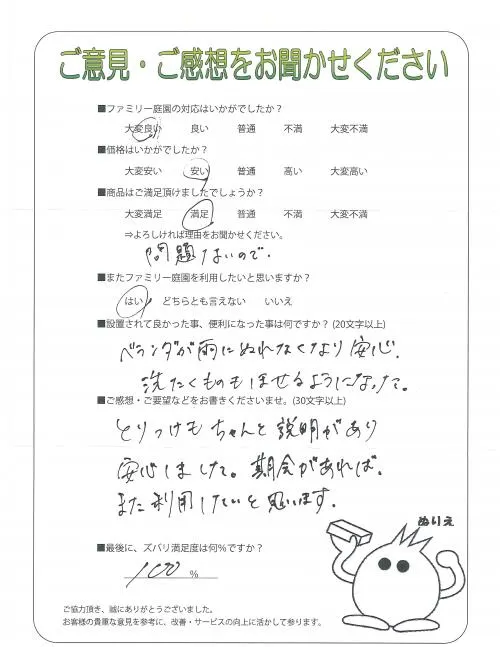 ご意見・ご感想をお聞かせください
■ファミリー庭園の対応はいかがでしたか？
大変良い 良い 普通 不満 大変不満
■価格はいかがでしたか？
大変安い 安い 普通 高い 大変高い
■商品はご満足頂けましたでしょうか？
大変満足 満足 普通 不満 大変不満
⇒よろしければ理由をお聞かせください。
問題ないので.
■またファミリー庭園を利用したいと思いますか？
はい どちらとも言えない いいえ
■設置されて良かった事、便利になった事は何ですか？(20文字以上)
ベランダが雨にぬれなくなり安心.
洗たくものもほせるようになった。
■ご感想・ご要望などをお書きくださいませ。(30文字以上)
とりつけも ちゃんと 説明があり
安心しました。期会があれば.
また利用したいと思います.
ぬりえ
■最後に、ズバリ満足度は何％ですか？
100 %
ご協力頂き、誠にありがとうございました。
お客様の貴重な意見を参考に、改善・サービスの向上に活かして参ります。